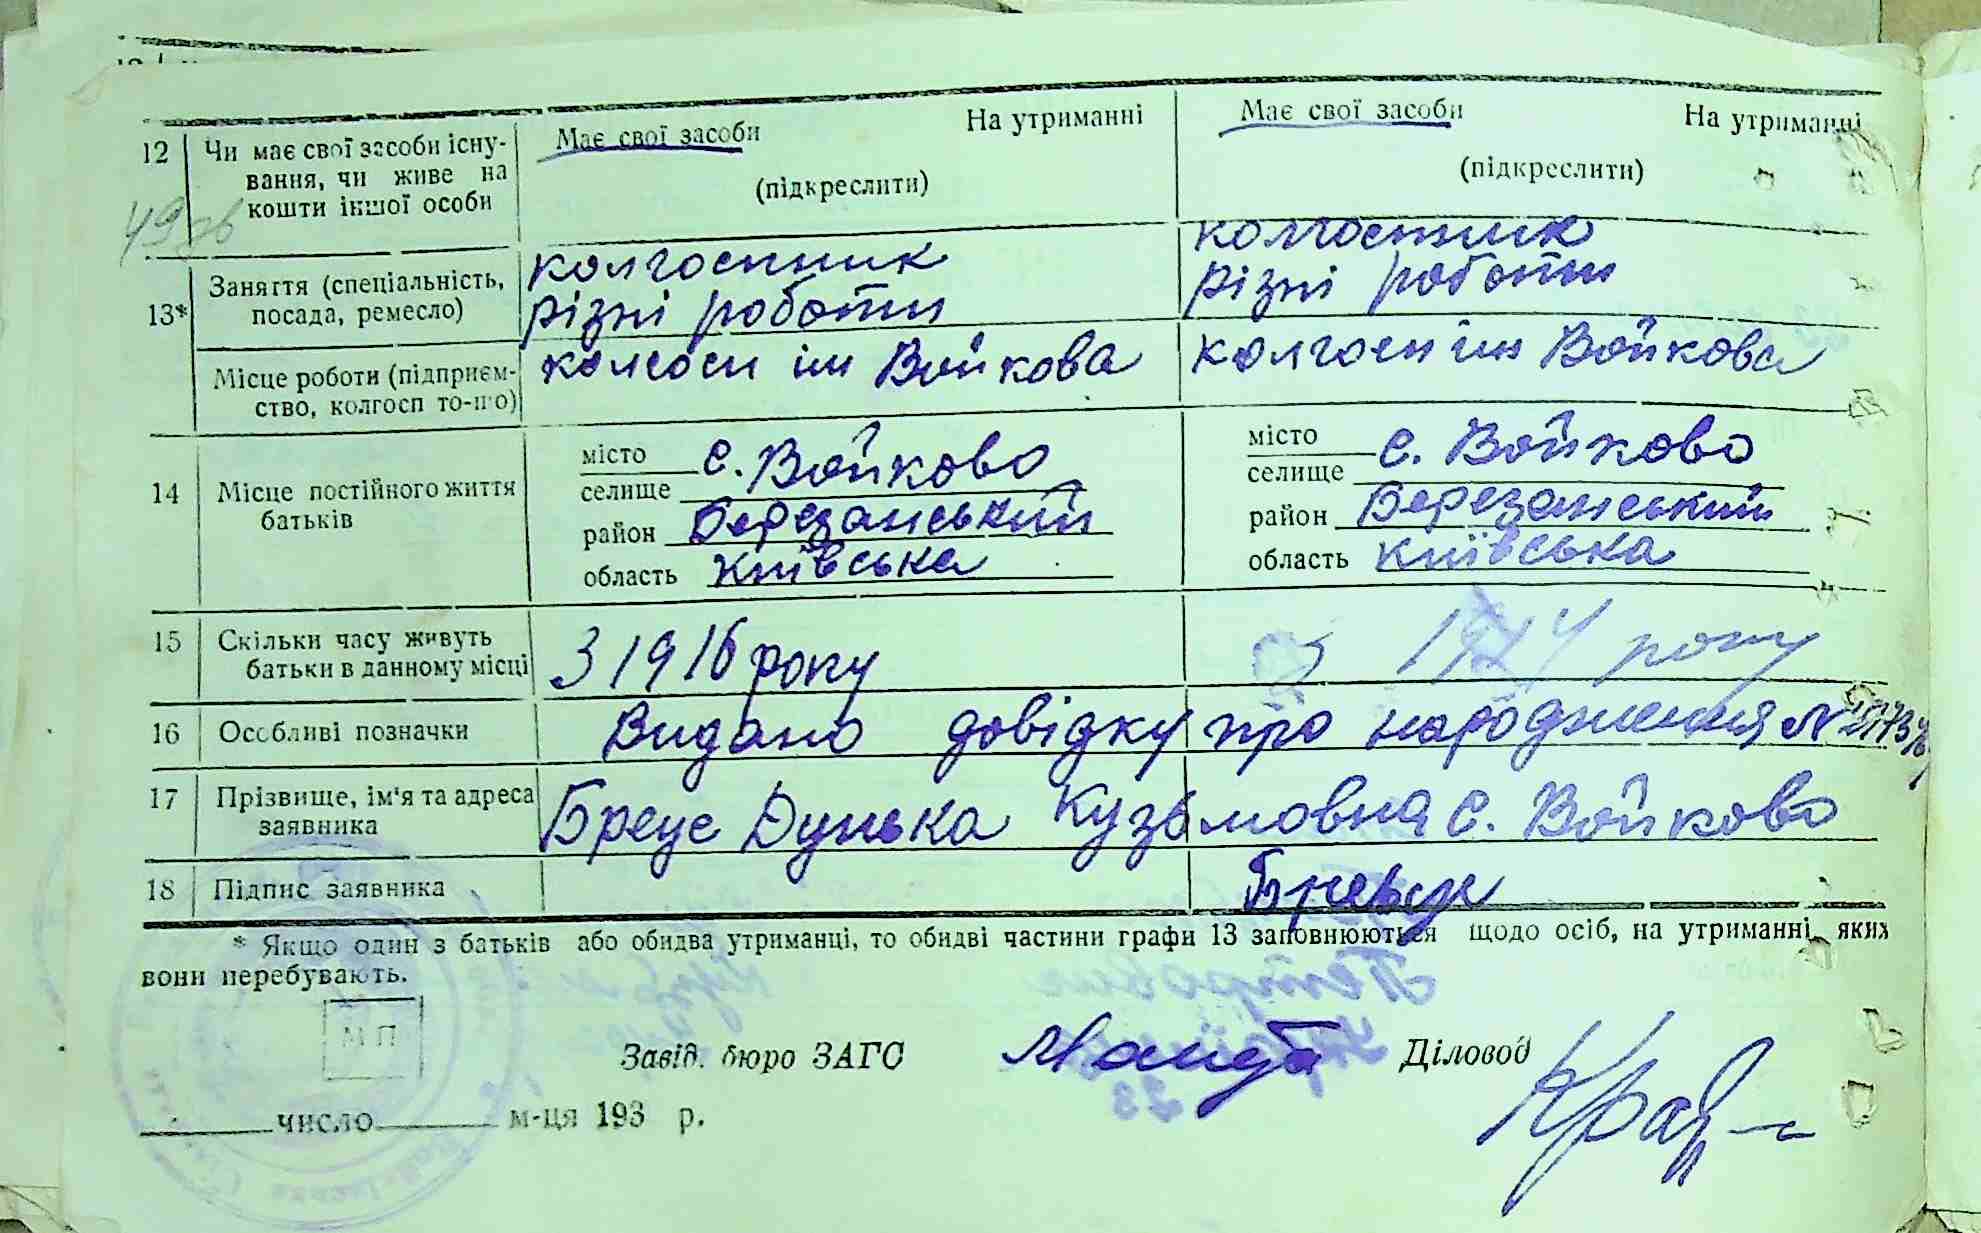 12 Чи має свої засоби існу- Має свої засоби На утриманні Має свої засоби На утриманні
вання, чи живе на (підкреслити) (підкреслити)
кошти іншої особи
13* Заняття (спеціальність, колгоспник колгоспник
посада, ремесло) різні роботи різні роботи
Місце роботи (підприєм- колгосп ім Войкова колгосп ім Войкова
ство, колгосп то-що)
14 Місце постійного життя місто с. Войково місто с. Войково
батьків селище селище
район Березанський район Березанський
область київська область київська
15 Скільки часу живуть З 1916 року З року
батьки в данному місці
16 Особливі позначки Видано довідку про народження №
17 Прізвище, ім'я та адреса Бреус Дунька Кузьмовна с. Войково
заявника
18 Підпис заявника
* Якщо один з батьків або обидва утриманці, то обидві частини графи 13 заповнюються щодо осіб, на утриманні яких
вони перебувають.
М П
Завід. бюро ЗАГС Діловод
число м-ця 193 р.